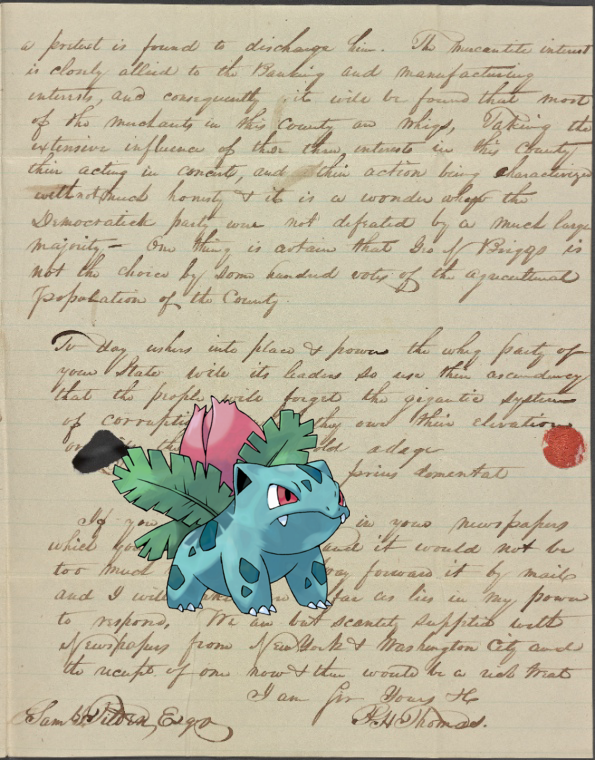 a pretext is found to discharge him. The mercantile interest
is closely allied to the Banking and manufacturing
interests, and consequently it will be found that most
of the merchants in this County are Whigs, Taking the
extensive influence of these three interests in this County,
their acting in concert, and their action being characterized
with not much honesty & it is a wonder why the
Democratick party were not defeated by a much large
majority — One thing is certain that Geo N Briggs is
not the choice by some hundred votes of the agricultural
Population of the County.
To day ushers into place & power the whig party of
your State will its leaders so use their ascendency
that the people will forget the gigantic system
of corruption they owe their elevation
old adage
prius dementat
If you in your newspapers
which you and it would not be
too much forward it by mail
and I will as far as lies in my power
to respond, We are but scantily supplied with
Newspapers from New York & Washington City and
the receipt of one now & then would be a rich treat
I am Sir Yours &c
Saml J Tilden, Esqr H H Thomas.